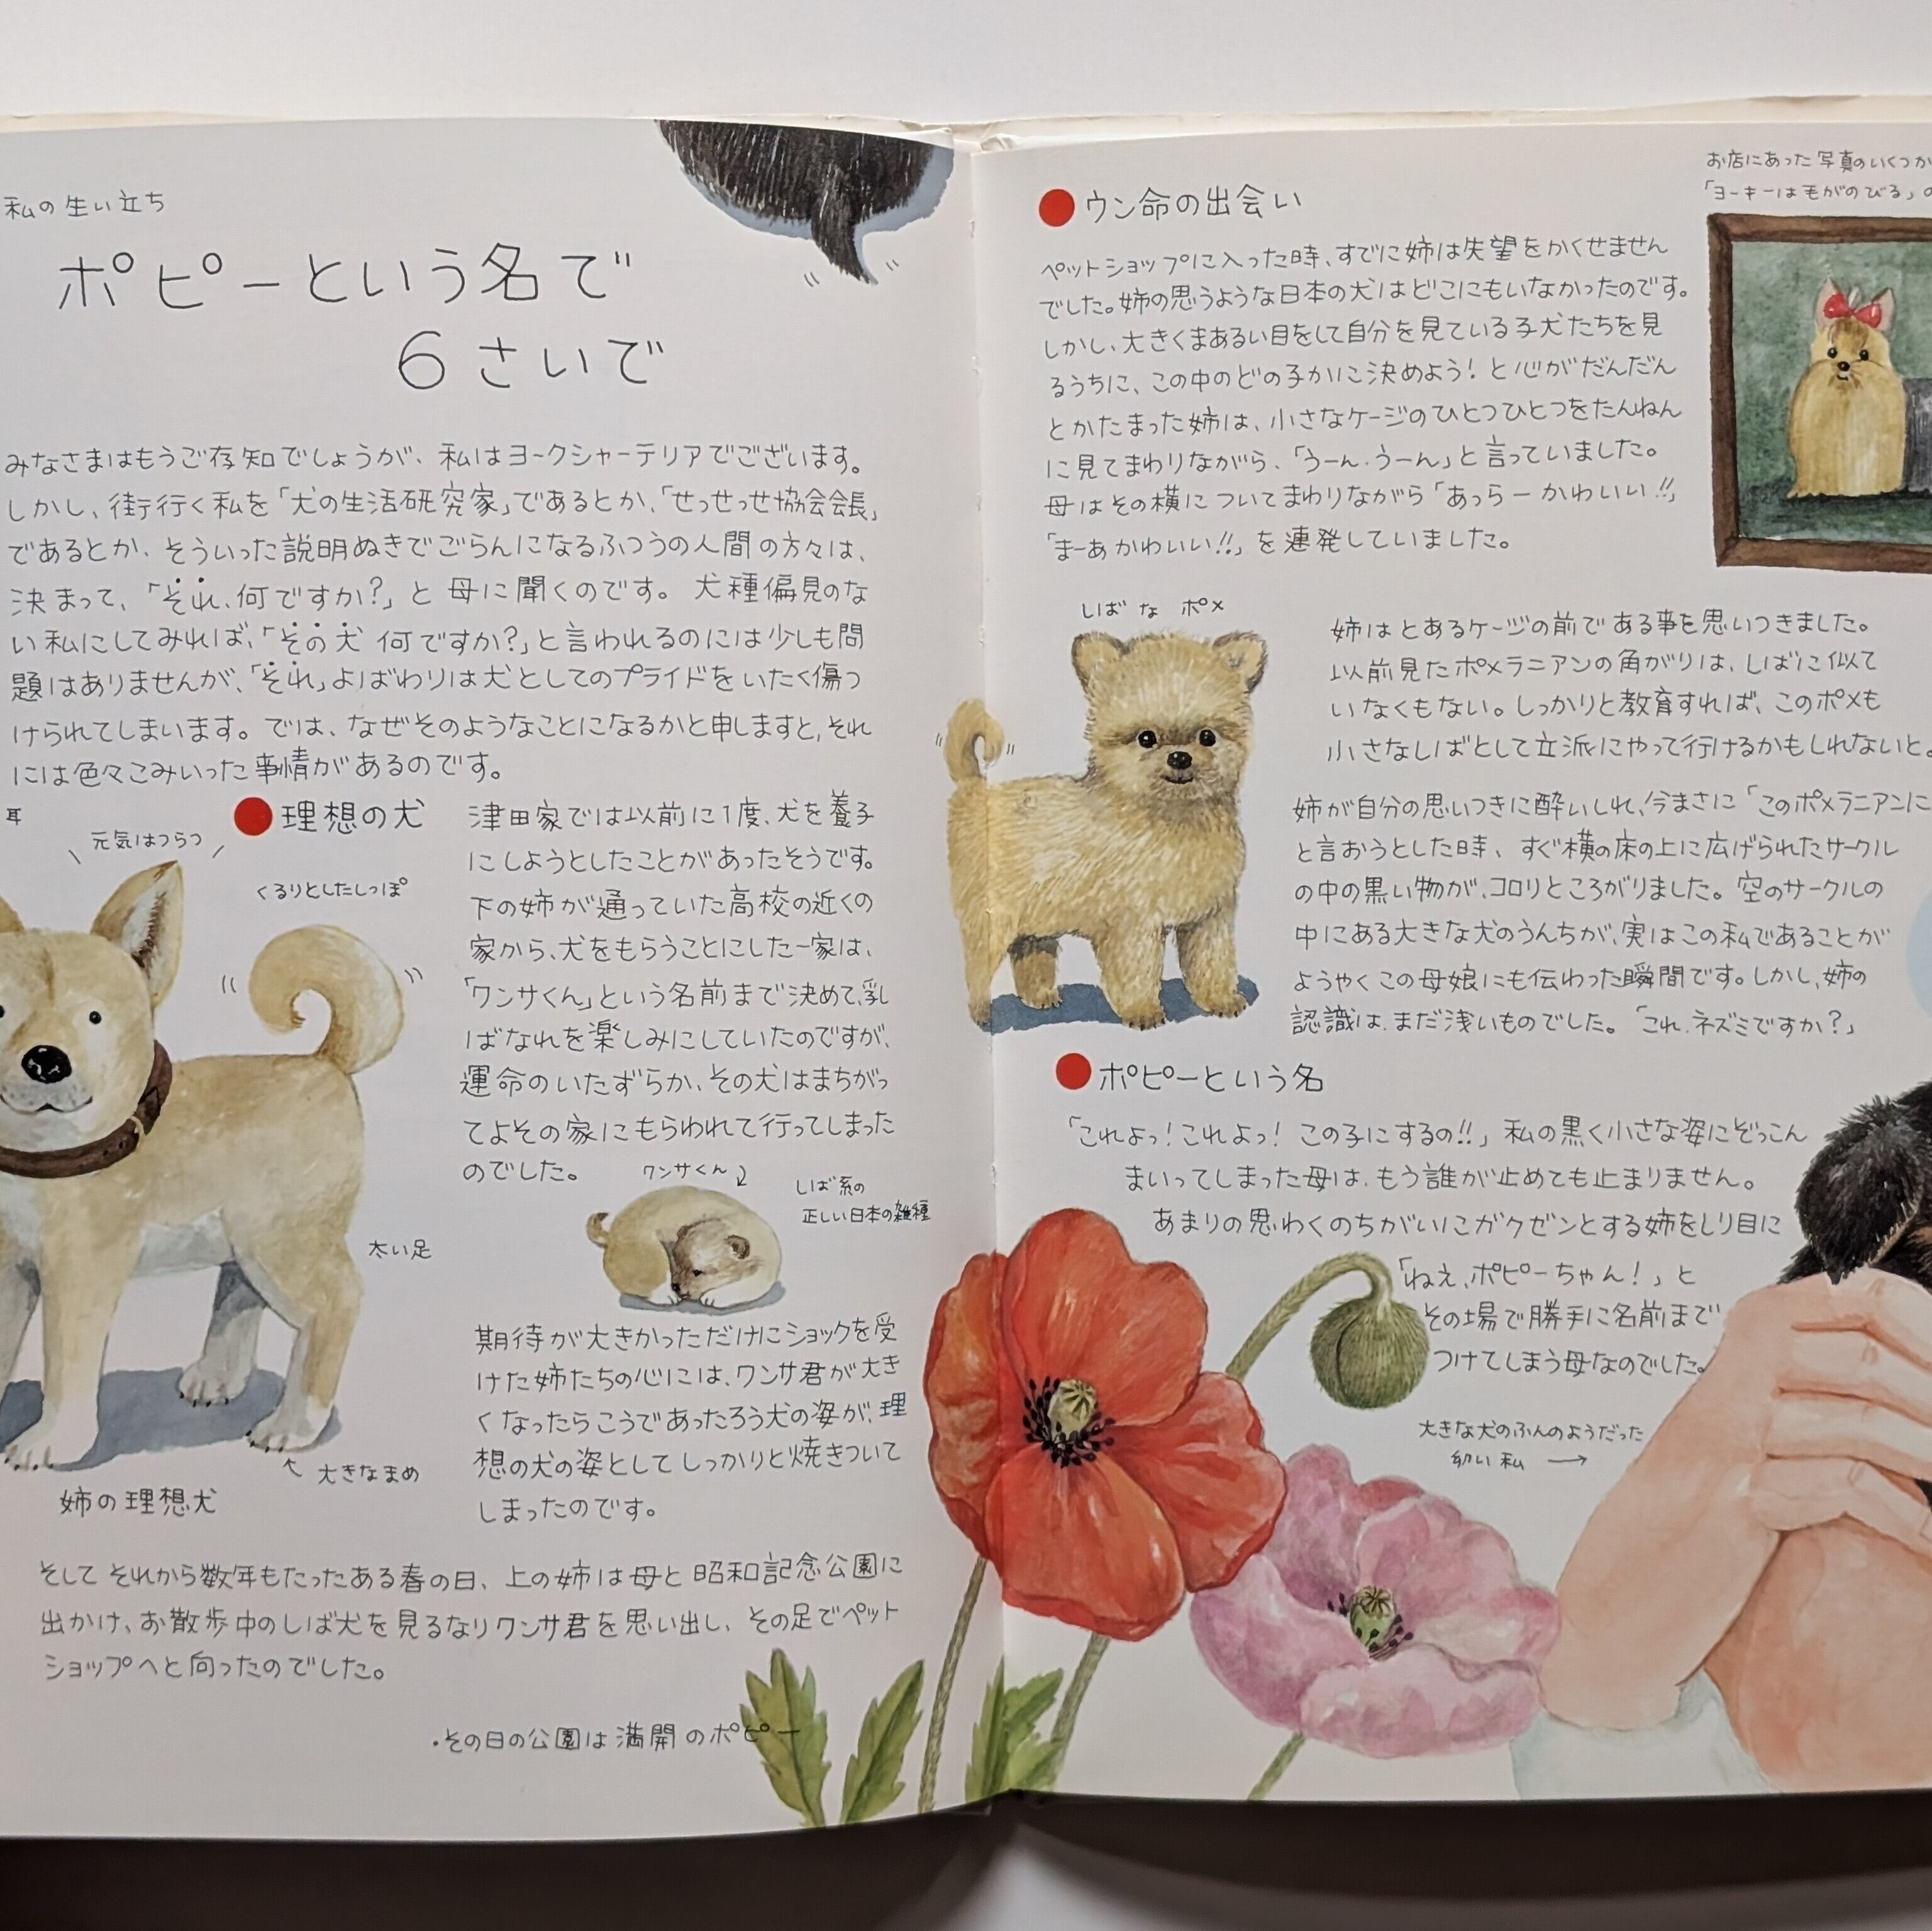 私の生い立ち
ポピーという名で
6さいで
みなさまはもうご存知でしょうが、私はヨークシャーテリアでございます。
しかし、街行く私を「犬の生活研究家」であるとか、「せっせっせ協会会長」
であるとか、そういった説明ぬきでごらんになるふつうの人間の方々は、
決まって、「それ、何ですか?」と母に聞くのです。犬種偏見のな
い私にしてみれば、「その犬 何ですか?」と言われるのには少しも問
題はありませんが、「それ」よばわりは犬としてのプライドをいたく傷つ
けられてしまいます。では、なぜそのようなことになるかと申しますと、それ
には色々こみいった事情があるのです。
耳
元気はつらつ
くるりとしたしっぽ
太い足
大きなまめ
姉の理想犬
●理想の犬
津田家では以前に1度、犬を養子
にしようとしたことがあったそうです。
下の姉が通っていた高校の近くの
家から、犬をもらうことにした一家は、
「ワンサくん」という名前まで決めて、乳
ばなれを楽しみにしていたのですが、
運命のいたずらか、その犬はまちがっ
てよその家にもらわれて行ってしまった
のでした。
ワンサくん
しば系の
正しい日本の雑種
期待が大きかっただけにショックを受
けた姉たちの心には、ワンサ君が大き
くなったらこうであったろう犬の姿が、理
想の犬の姿としてしっかりと焼きついて
しまったのです。
そしてそれから数年もたったある春の日、上の姉は母と昭和記念公園に
出かけ、お散歩中のしば犬を見るなりワンサ君を思い出し、その足でペット
ショップへと向ったのでした。
・その日の公園は満開のポピー
●ウン命の出会い
ペットショップに入った時、すでに姉は失望をかくせません
でした。姉の思うような日本の犬はどこにもいなかったのです。
しかし、大きくまあるい目をして自分を見ている子犬たちを見
るうちに、この中のどの子かに決めよう!と心がだんだん
とかたまった姉は、小さなケージのひとつひとつをたんねん
に見てまわりながら、「うーん、うーん」と言っていました。
母はその横についてまわりながら「あっらー かわいい!!」
「まーあ かわいい!!」を連発していました。
お店にあった写真のいくつか
「ヨーキーは毛がのびる」の
しばなポメ
姉はとあるケージの前である事を思いつきました。
以前見たポメラニアンの角がりは、しばに似て
いなくもない。しっかりと教育すれば、このポメも
小さなしばとして立派にやって行けるかもしれないと。
姉が自分の思いつきに酔いしれ、今まさに「このポメラニアンに
と言おうとした時、すぐ横の床の上に広げられたサークル
の中の黒い物が、コロリところがりました。空のサークルの
中にある大きな犬のうんちが、実はこの私であることが
ようやくこの母娘にも伝わった瞬間です。しかし、姉の
認識は、まだ浅いものでした。「これ、ネズミですか?」
●ポピーという名
「これよっ!これよっ! この子にするの!!」私の黒く小さな姿にぞっこん
まいってしまった母は、もう誰が止めても止まりません。
あまりの思わくのちがいにガクゼンとする姉をしり目に
「ねえ、ポピーちゃん!」と
その場で勝手に名前まで
つけてしまう母なのでした。
大きな犬のふんのようだった
幼い私 →